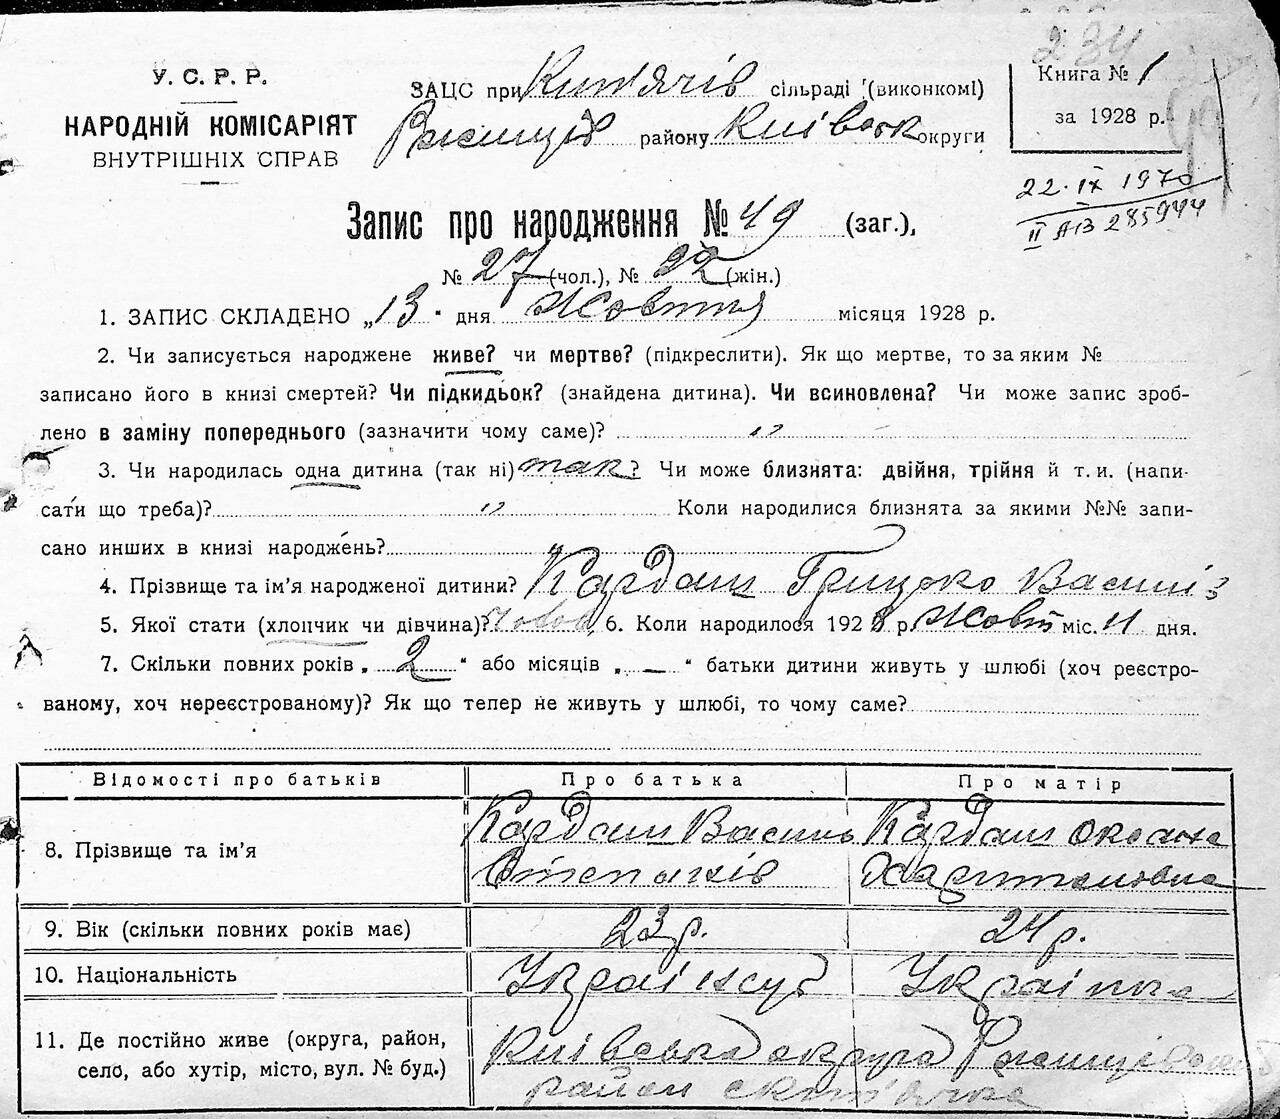 234
У. С. Р. Р.
НАРОДНІЙ КОМІСАРІЯТ
ВНУТРІШНІХ СПРАВ
ЗАЦС при сільраді (виконкомі)
району Київськ округи
Книга № 1
за 1928 р.
22. IX 1970
II АПЗ 285944
Запис про народження № 49 (заг.),
№ 27 (чол.), № 22 (жін.)
1. ЗАПИС СКЛАДЕНО „13" дня Жовтня місяця 1928 р.
2. Чи записується народжене живе? чи мертве? (підкреслити). Як що мертве, то за яким №
записано його в книзі смертей? Чи підкидьок? (знайдена дитина). Чи всиновлена? Чи може запис зроб-
лено в заміну попереднього (зазначити чому саме)? „
3. Чи народилась одна дитина (так ні) так? Чи може близнята: двійня, трійня й т. и. (напи-
сати що треба)? „ Коли народилися близнята за якими №№ запи-
сано инших в книзі народжень? „
4. Прізвище та ім'я народженої дитини? Кардаш Грицько Василів
5. Якої стати (хлопчик чи дівчина)? 6. Коли народилося 1928 р. Жовт міс. 11 дня.
7. Скільки повних років „2" або місяців „—" батьки дитини живуть у шлюбі (хоч реєстро-
ваному, хоч нереєстрованому)? Як що тепер не живуть у шлюбі, то чому саме?
Відомості про батьків Про батька Про матір
8. Прізвище та ім'я Кардаш Василь Степанів Кардаш Оксана Харитоновна
9. Вік (скільки повних років має) 23 р. 24 р.
10. Національність Українець Українка
11. Де постійно живе (округа, район, Київська округа Ржищівський
село, або хутір, місто, вул. № буд.) район